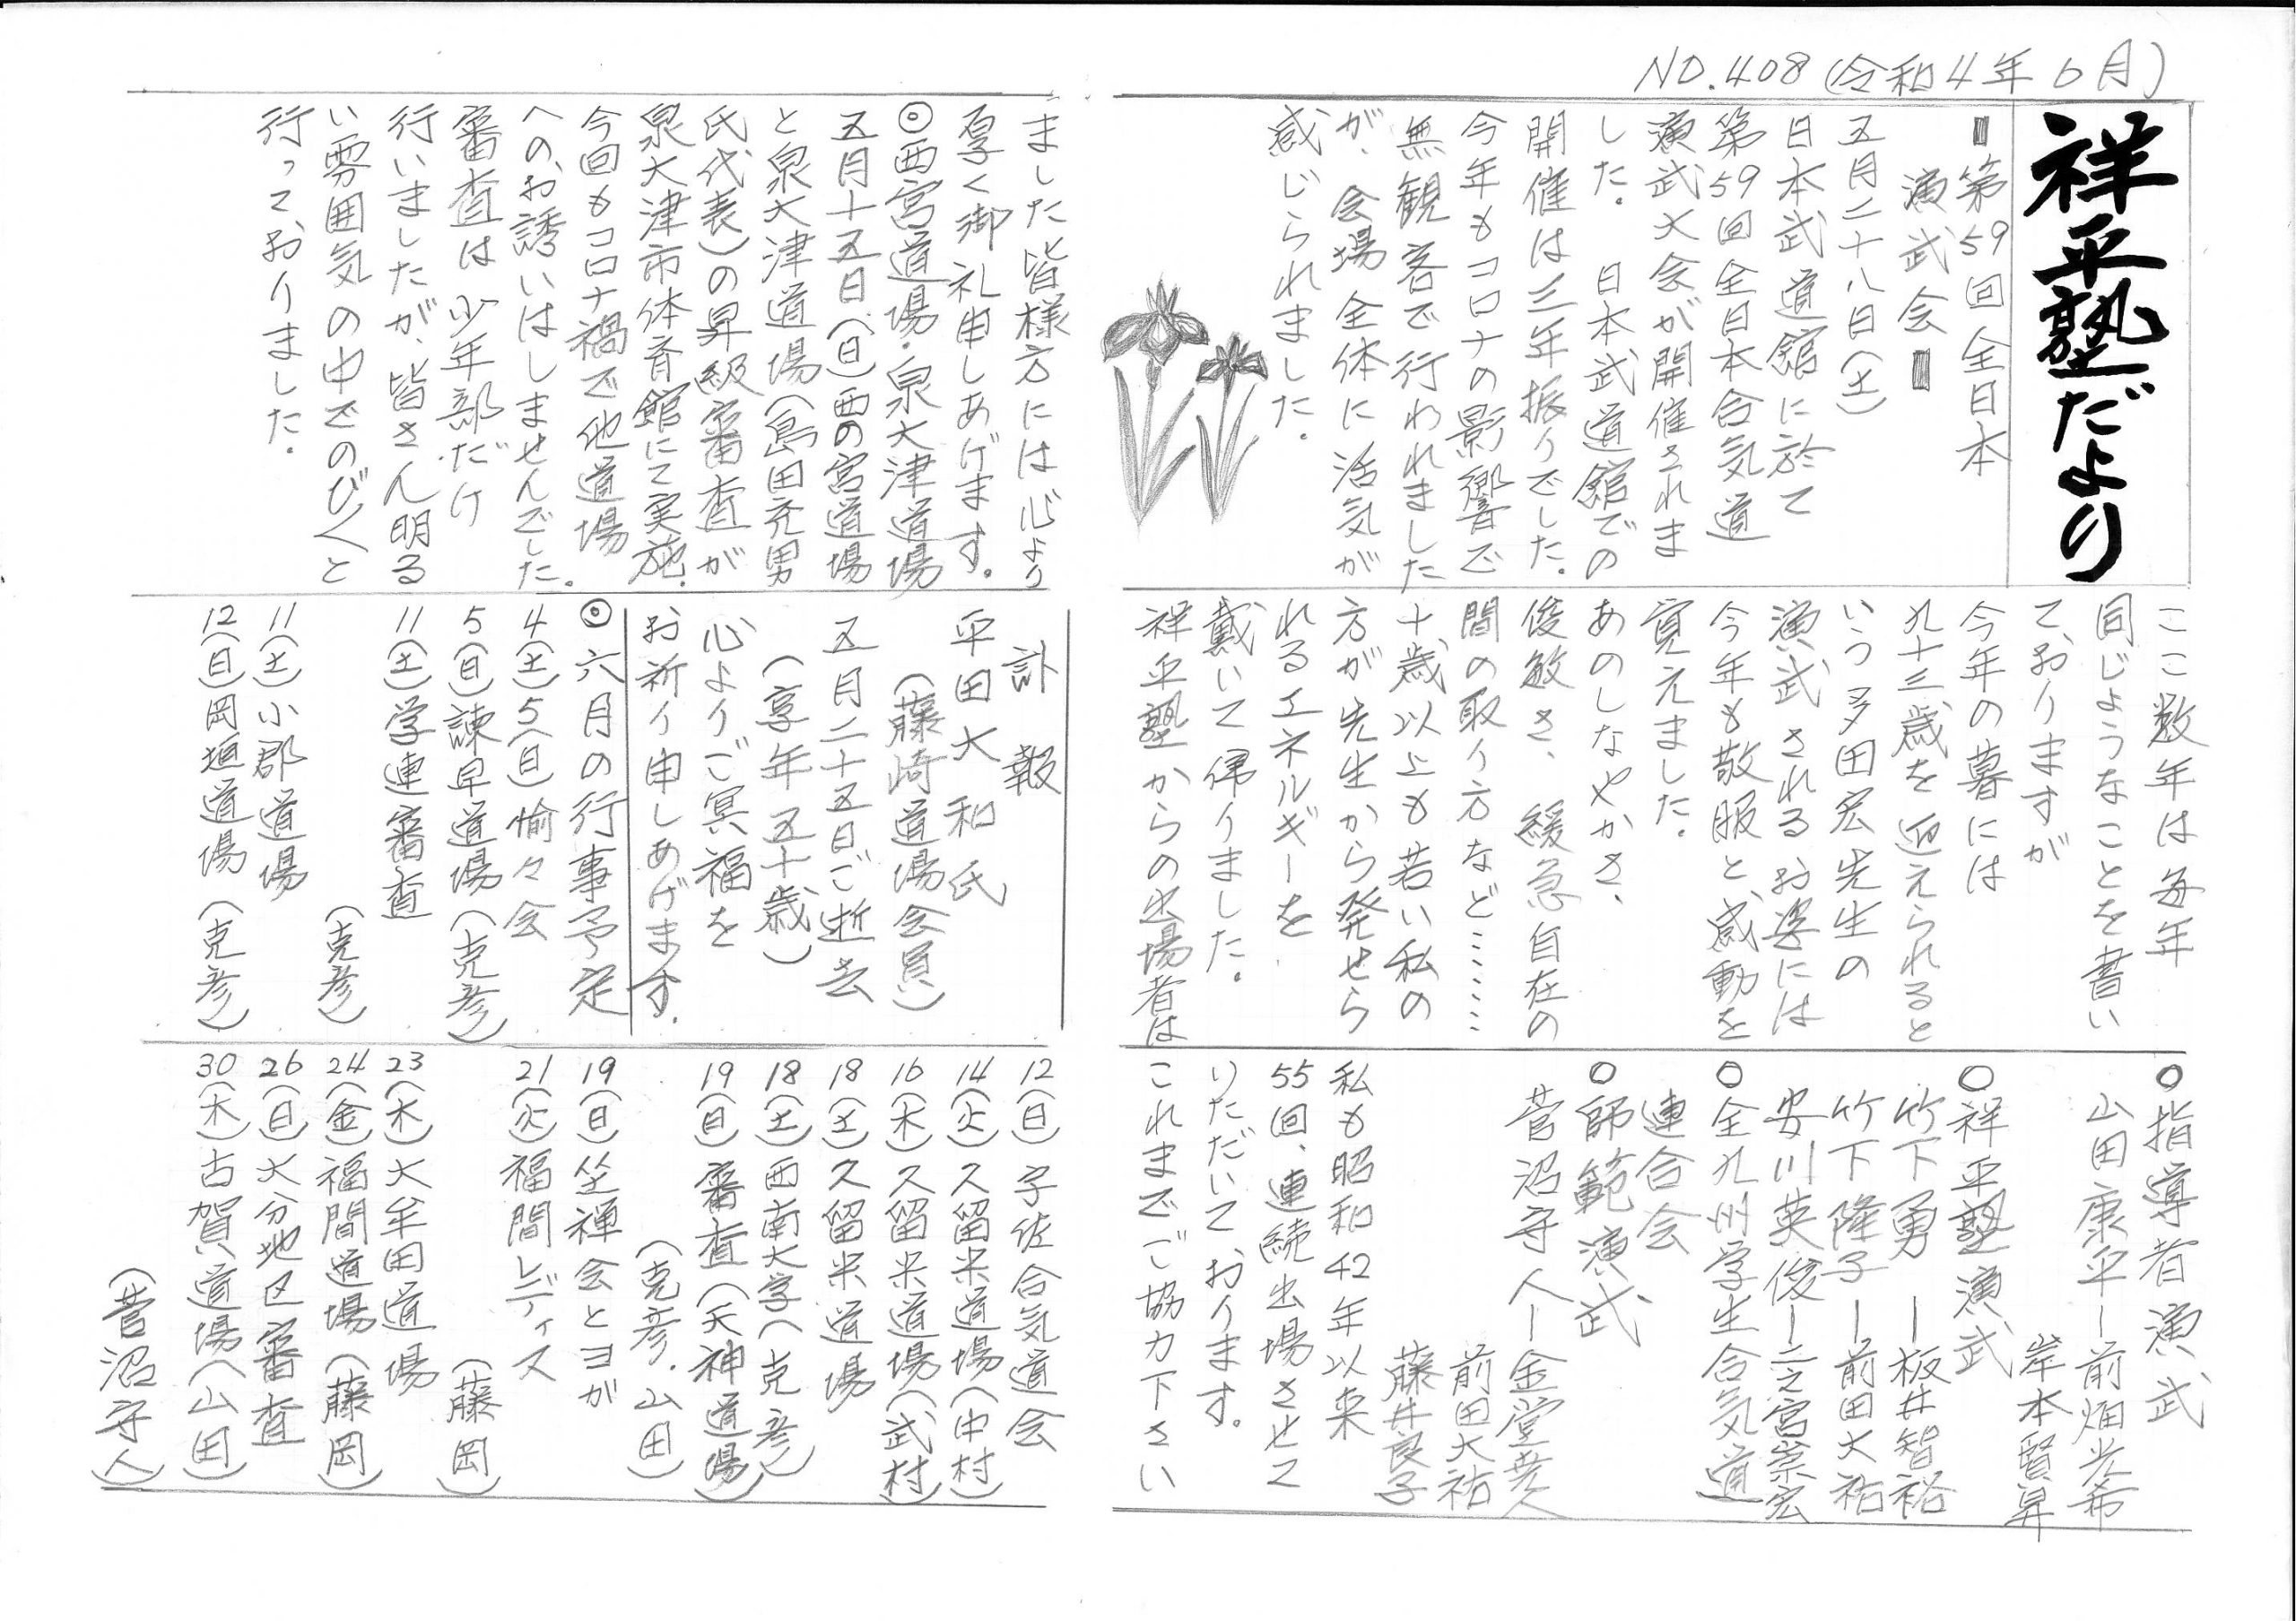 NO.408(令和4年6月)
祥平塾だより
▮第59回全日本
演武会▮
五月二十八日(土)
日本武道館に於て
第59回全日本合気道
演武大会が開催されま
した。日本武道館での
開催は三年振りでした。
今年もコロナの影響で
無観客で行われました
が、会場全体に活気が
感じられました。
ここ数年は毎年
同じようなことを書い
ておりますが
今年の暮には
九十三歳を迎えられると
いう多田宏先生の
演武されるお姿には
今年も敬服と感動を
覚えました。
あのしなやかさ、
俊敏さ、緩急自在の
間の取り方など……
十歳以上も若い私の
方が先生から発せら
れるエネルギーを
戴いて帰りました。
祥平塾からの出場者は
○指導者演武
山田康平ー前畑光希
岸本賢昇
○祥平塾演武
竹下勇ー板井智裕
竹下隆子ー前田大祐
安川英俊ー二之宮崇宏
○全九州学生合気道
連合会
○師範演武
菅沼守人ー金堂
前田大祐
藤井良子
私も昭和42年以来
55回、連続出場させて
いただいております。
これまでご協力下さい
ました皆様方には心より
厚く御礼申しあげます。
◎西宮道場・泉大津道場
五月十五日(日)西の宮道場
と泉大津道場(島田充男
氏代表)の昇級審査が
泉大津市体育館にて実施.
今回もコロナ禍で他道場
へのお誘いはしませんでした.
審査は少年部だけ
行いましたが、皆さん明る
い雰囲気の中でのび〱と
行っておりました.
訃報
平田大和氏
(藤崎道場会員)
五月二十五日ご逝去
(享年五十歳)
心よりご冥福を
お祈り申しあげます.
◎六月の行事予定
4(土)5(日)愉々会
5(日)諫早道場(克彦)
11(土)学連審査
(克彦)
11(土)小郡道場
12(日)岡垣道場(克彦)
12(日)宇佐合気道会
14(火)久留米道場(中村)
16(木)久留米道場(武村)
18(土)久留米道場
18(土)西南大学(克彦)
19(日)審査(天神道場)
(克彦.山田)
19(日)坐禅会とヨガ
21(火)福間レディス
(藤岡)
23(木)大牟田道場
24(金)福間道場(藤岡)
26(日)大分地区審査
30(木)古賀道場(山田)
(菅沼守人)